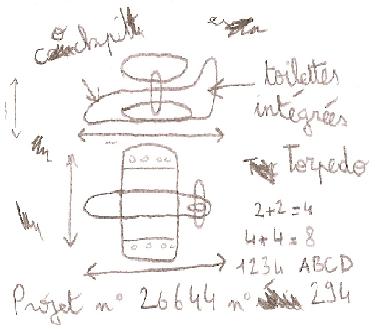 Cockpitt
toilettes
intégrées
Torpedo
2+2=4
4+4=8
1234 ABCD
Projet n° 26644 n° 294